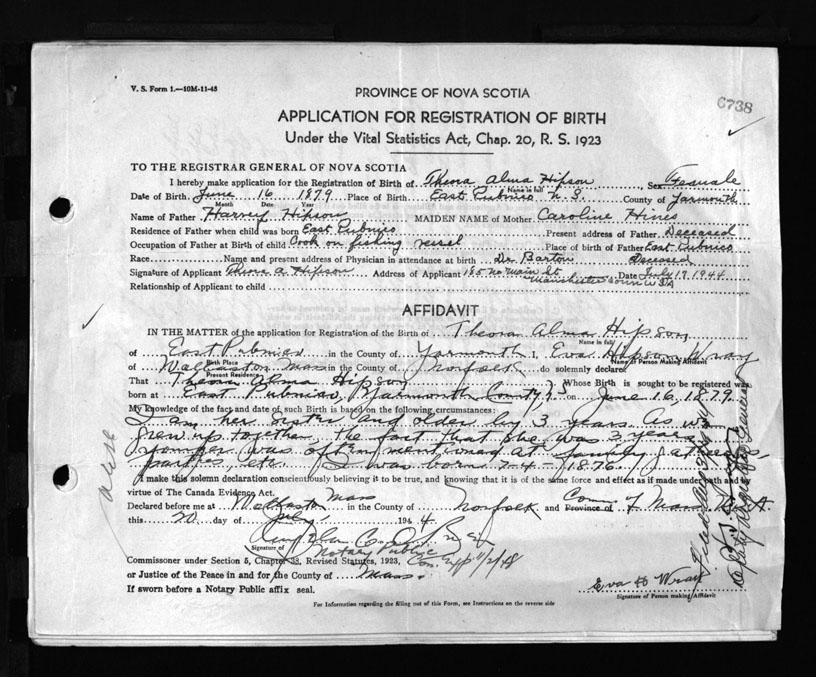 V. S. Form 1.—10M-11-43
PROVINCE OF NOVA SCOTIA
C738
APPLICATION FOR REGISTRATION OF BIRTH
Under the Vital Statistics Act, Chap. 20, R. S. 1923
TO THE REGISTRAR GENERAL OF NOVA SCOTIA
I hereby make application for the Registration of Birth of Theora Alma Hipson Sex Female
Name in full
Date of Birth June 16 1879 Place of Birth East Pubnico N. S. County of Yarmouth
Month Date Year
Name of Father Harvey Hipson MAIDEN NAME of Mother Caroline Hines
Residence of Father when child was born East Pubnico Present address of Father Deceased
Occupation of Father at Birth of child Cook on fishing vessel Place of birth of Father East Pubnico
Race Name and present address of Physician in attendance at birth Dr Barton Deceased
Signature of Applicant Theora A Hipson Address of Applicant 185 No Main St Manchester Conn USA Date July 17 1944
Relationship of Applicant to child
AFFIDAVIT
IN THE MATTER of the application for Registration of the Birth of Theora Alma Hipson
Name in full
of East Pubnico in the County of Yarmouth I, Eva Hipson Wray
Birth Place Name of Person Making Affidavit
of Wollaston Mass in the County of Norfolk do solemnly declare:
Present Residence
That Theora Alma Hipson Whose Birth is sought to be registered was
born at East Pubnico, Yarmouth County on June 16, 1879
My knowledge of the fact and date of such Birth is based on the following circumstances:
I am her sister and older by 3 years. As we
grew up together, the fact that she was 3 years
younger was often mentioned at family gatherings
parties, etc. I was born 7-4-1876.
I make this solemn declaration conscientiously believing it to be true, and knowing that it is of the same force and effect as if made under oath and by
virtue of The Canada Evidence Act.
Declared before me at Wollaston Mass in the County of Norfolk and Province of Com. of Mass
this 20 day of July 1944
Signature of
Notary Public
Commissioner under Section 5, Chapter 38, Revised Statutes, 1923,
or Justice of the Peace in and for the County of Mass.
If sworn before a Notary Public affix seal.
Eva H Wray
Signature of Person making Affidavit
For Information regarding the filling out of this Form, see Instructions on the reverse side